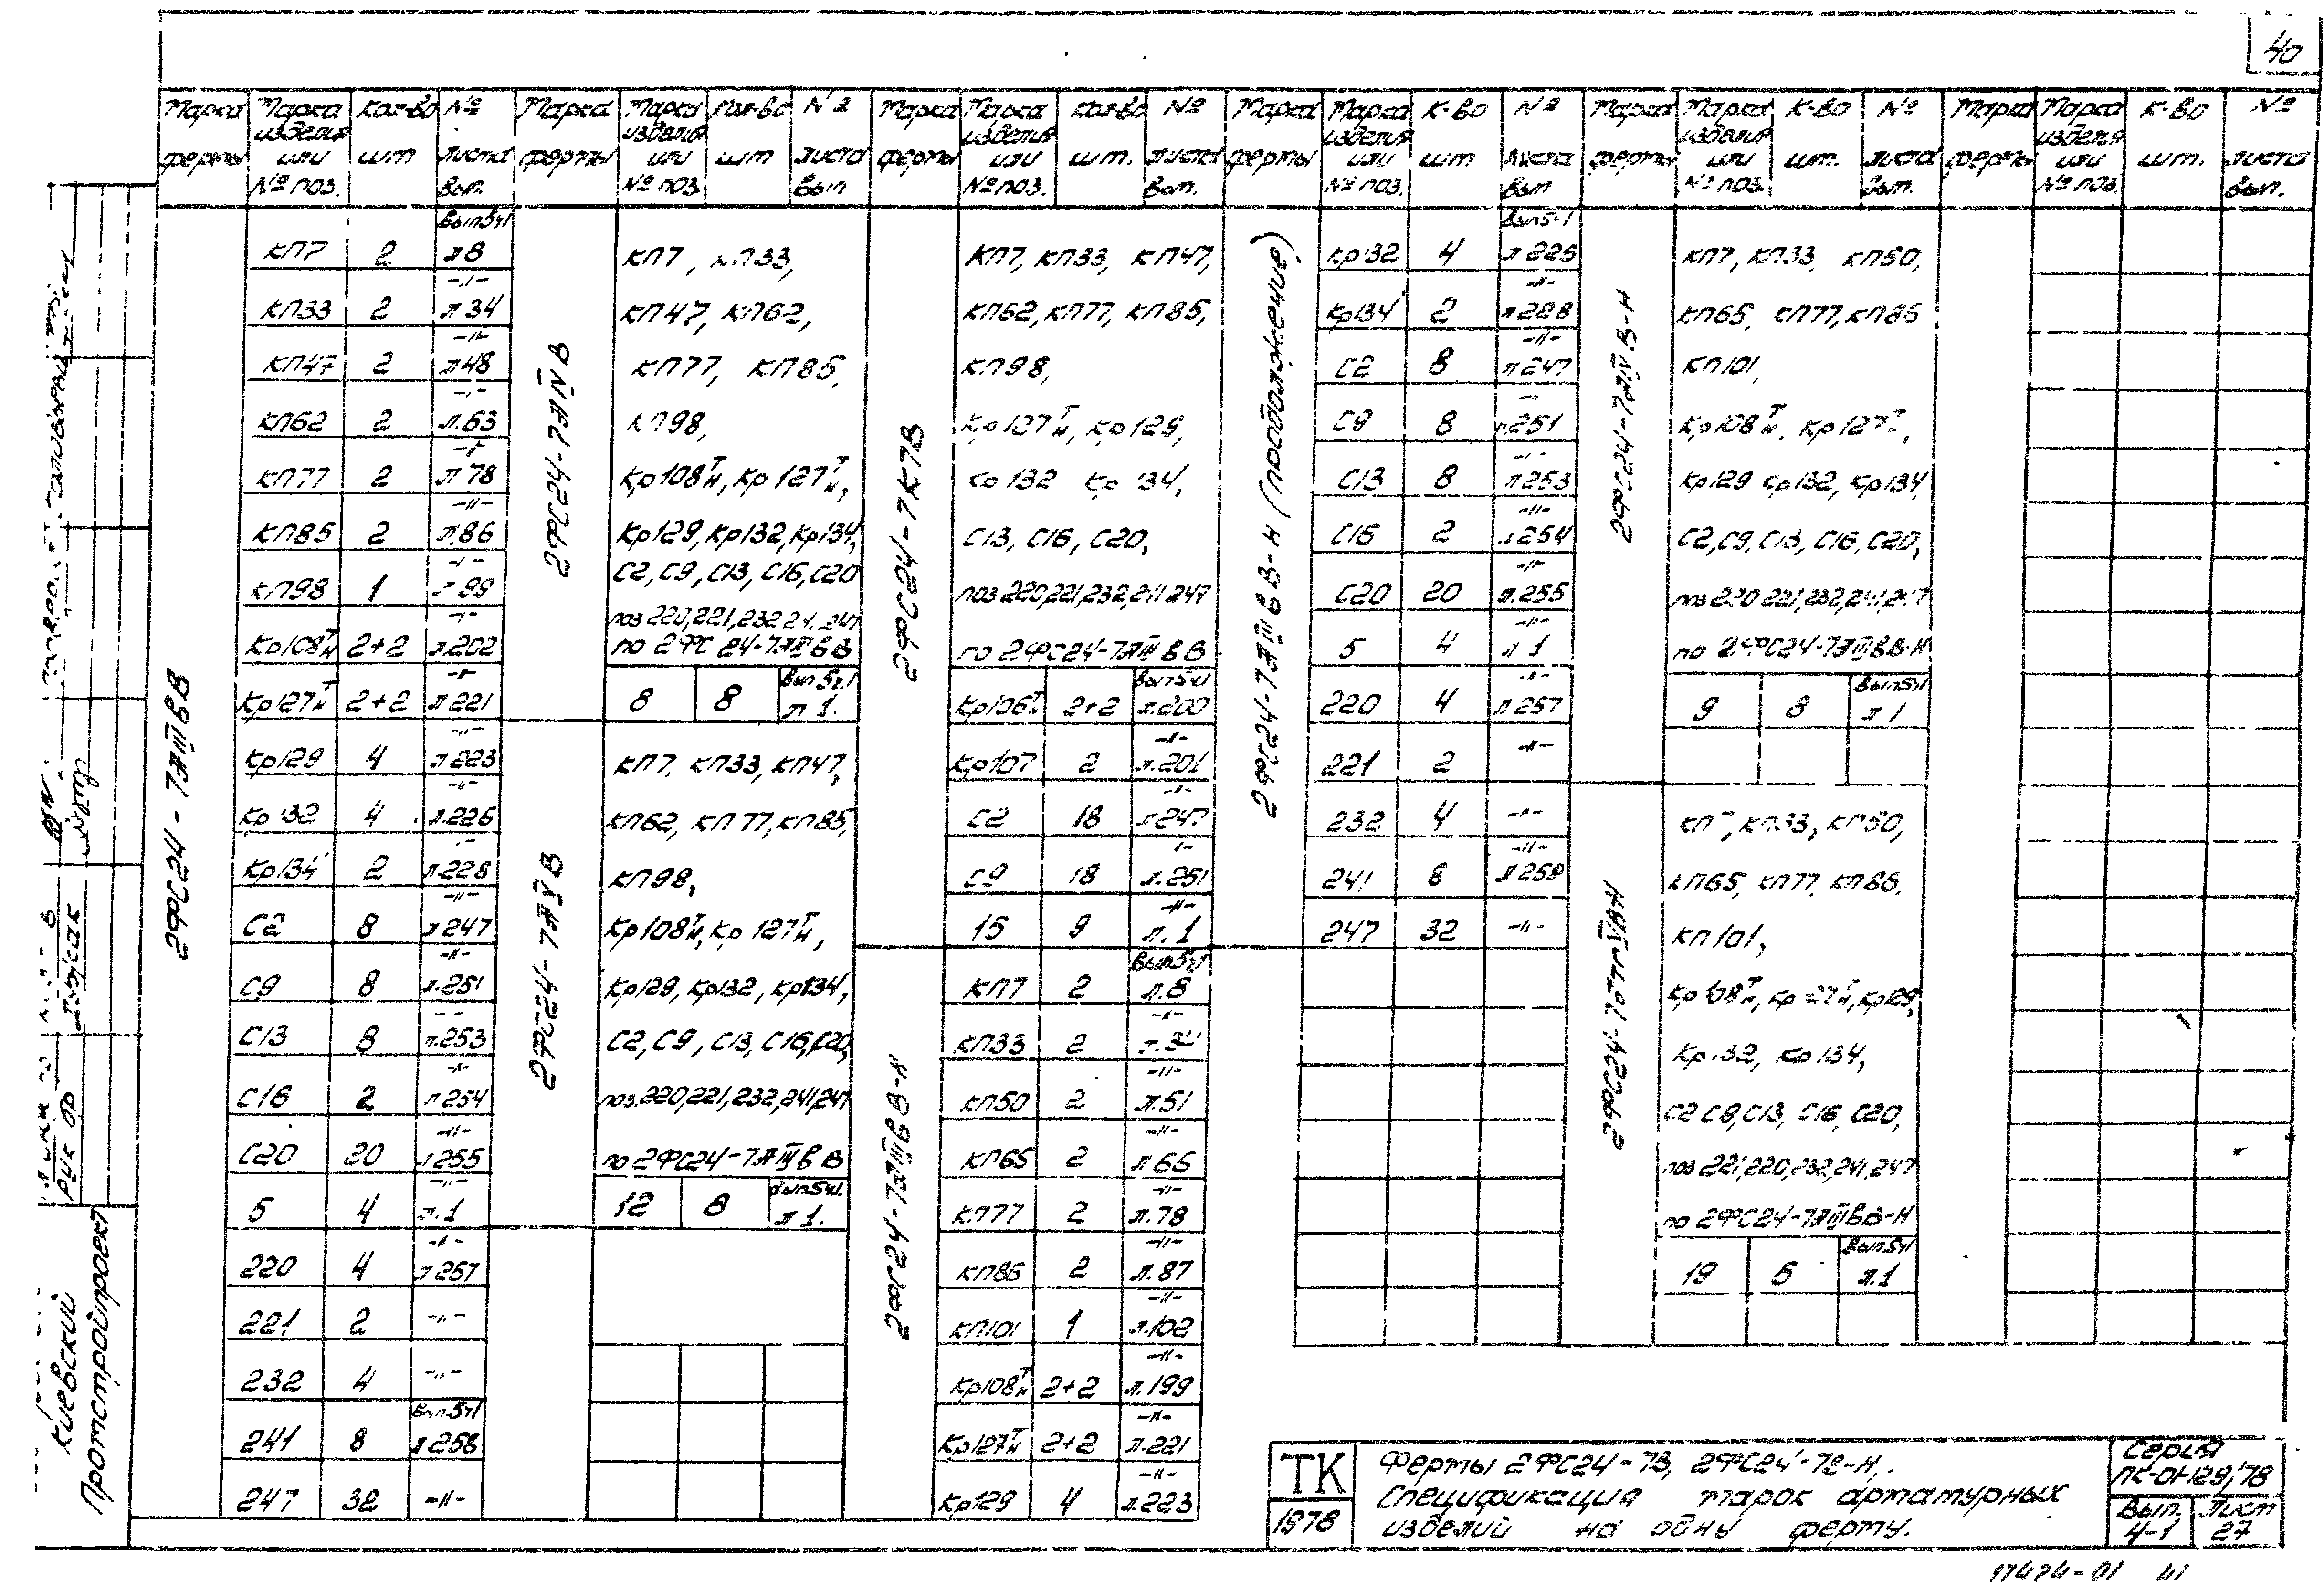 40
Марка фермы Марка изделия или № поз. Кол-во шт № листа вып. Марка фермы Марка изделия или № поз. Кол-во шт № листа вып Марка фермы Марка изделия или № поз. Кол-во шт. № листа вып. Марка фермы Марка изделия или № поз. К-во шт № листа вып Марка фермы Марка изделия или № поз. К-во шт. № листа вып. Марка фермы Марка изделия или № поз. К-во шт. № листа вып.
2ФС24-7АIIIвВ
Вып5ч1
КП7 2 л8
КП33 2 -"- л34
КП47 2 -"- л48
КП62 2 -"- л.63
КП77 2 -"- л78
КП85 2 -"- л.86
КП98 1 -"- л99
Кр108Т/Н 2+2 -"- л.202
Кр127Т/Н 2+2 -"- л221
Кр129 4 -"- л223
Кр132 4 -"- л.226
Кр134 2 -"- л.228
С2 8 -"- л247
С9 8 -"- л.251
С13 8 -"- л.253
С16 2 -"- л254
С20 20 -"- л255
5 4 -"- л.1
220 4 -"- л257
221 2 -"-
232 4 -"-
241 8 Вып.5ч1 л258
247 32 -"-
2ФС24-7АIVВ
КП7, КП33,
КП47, КП62,
КП77, КП85,
КП98,
Кр108Т/Н, Кр127Т/Н,
Кр129, Кр132, Кр134,
С2, С9, С13, С16, С20
поз 220, 221, 232, 241, 247
по 2ФС24-7АIIIвВ
8 8 Вып5ч.1 л1.
2ФС24-7АVВ
КП7, КП33, КП47,
КП62, КП77, КП85,
КП98,
Кр108Т/Н, Кр127Т/Н,
Кр129, Кр132, Кр134,
С2, С9, С13, С16, С20,
поз.220, 221, 232, 241, 247
по 2ФС24-7АIIIвВ
12 8 Вып5ч1. л1.
2ФС24-7К7В
КП7, КП33, КП47,
КП62, КП77, КП85,
КП98,
Кр127Т/Н, Кр129,
Кр132 Кр134,
С13, С16, С20,
поз 220, 221, 232, 241 247
по 2ФС24-7АIIIвВ
Кр106Т/Н 2+2 Вып5ч1 л.200
Кр107 2 -"- л.201
С2 18 -"- л247
С9 18 -"- л.251
15 9 -"- л.1
2ФС24-7АIIIвВ-Н
Вып5ч1
КП7 2 л.8
КП33 2 -"- л.34
КП50 2 -"- л.51
КП65 2 -"- л66
КП77 2 -"- л.78
КП86 2 -"- л.87
КП101 1 -"- л.102
Кр108Т/Н 2+2 -"- л.199
Кр127Т/Н 2+2 -"- л.221
Кр129 4 -"- л.223
2ФС24-7АIIIвВ-Н (продолжение)
Вып5ч1
Кр132 4 л226
Кр134 2 -"- л228
С2 8 -"- л247
С9 8 -"- л251
С13 8 -"- л253
С16 2 -"- л254
С20 20 -"- л.255
5 4 -"- л1
220 4 -"- л257
221 2 -"-
232 4 -"-
241 8 -"- л258
247 32 -"-
2ФС24-7АIVВ-Н
КП7, КП33, КП50,
КП65, КП77, КП86
КП101,
Кр108Т/Н, Кр127Т,
Кр129 Кр132, Кр134
С2, С9, С13, С16, С20,
поз 220 221, 232, 241, 247
по 2ФС24-7АIIIвВ-Н
9 8 Вып5ч1 л1
КП33, КП50,
КП65, КП77, КП86,
КП101,
Кр108Т/Н, Кр127Т/Н, Кр129,
Кр132, Кр134,
С2 С9, С13, С16, С20,
поз 221, 220, 232, 241, 247
по 2ФС24-7АIIIвВ-Н
19 Вып5ч1 л.1
Киевский
Промстройпроект
ТК
1978
Фермы 2ФС24-7В, 2ФС24-7В-Н.
Спецификация марок арматурных
изделий на одну ферму.
Серия
ПК-01-129/78
Вып. Лист
4-1 27
17424-01 41